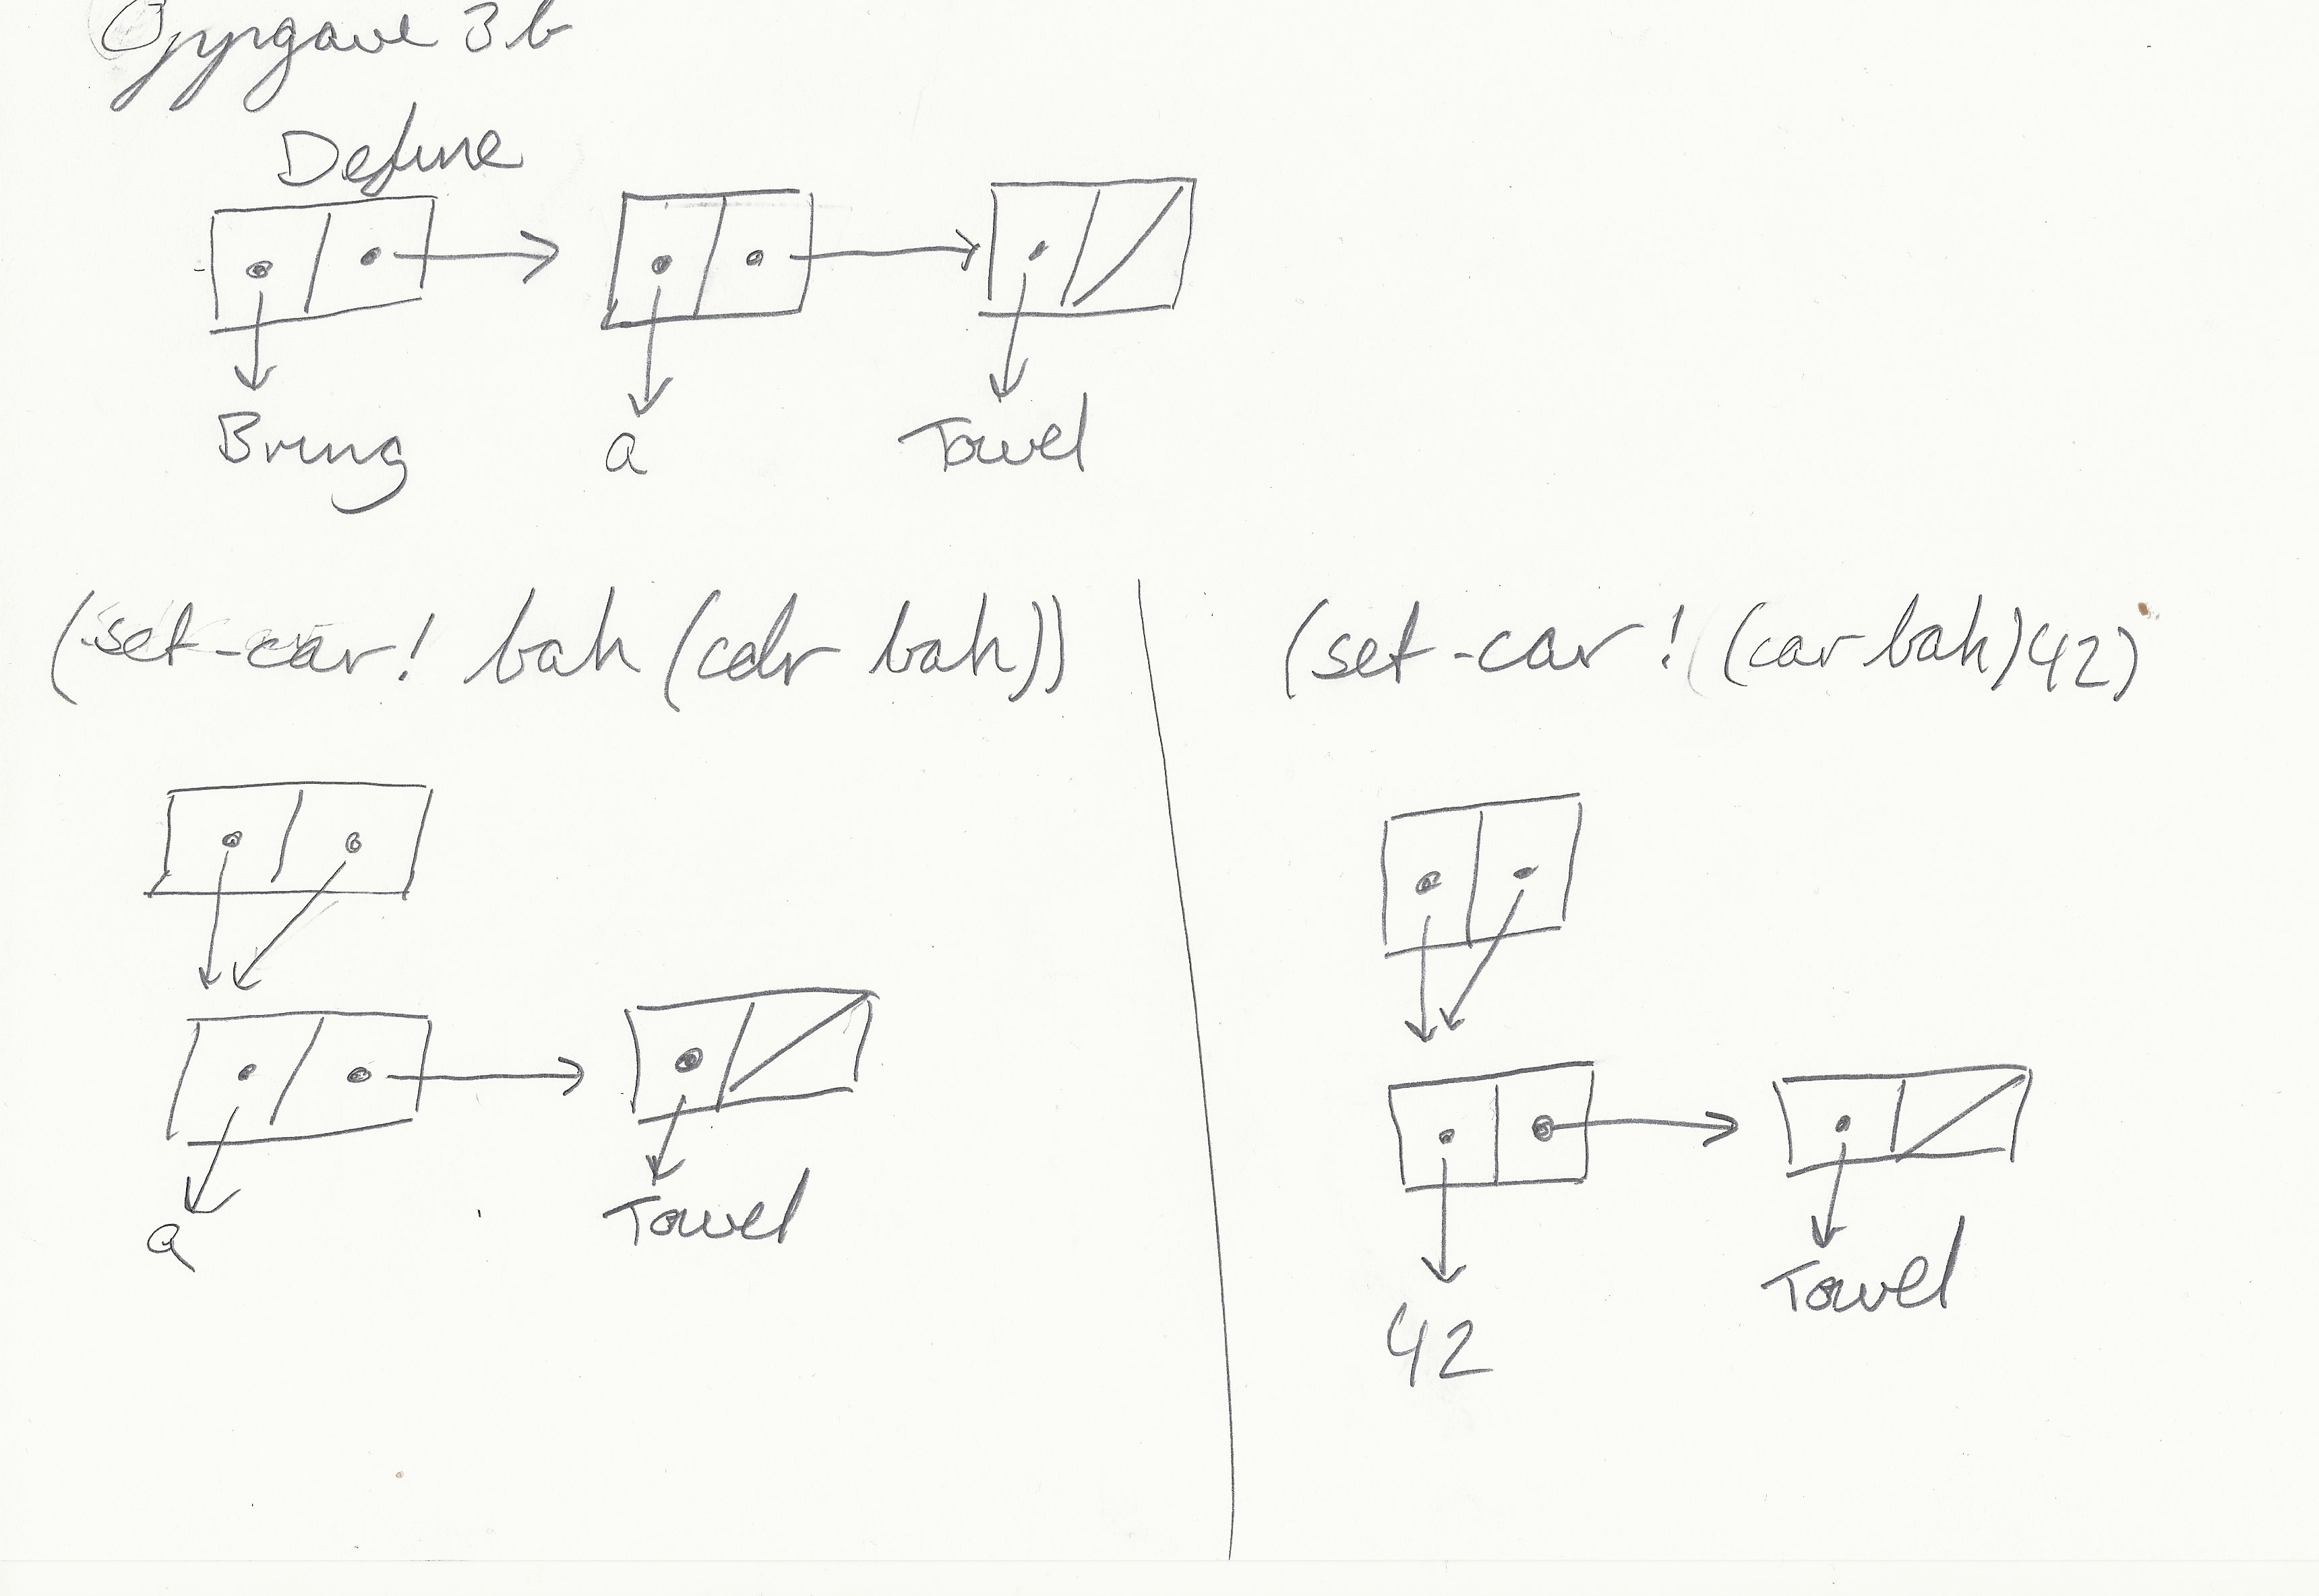 Oppgave 3b
Define
Bring a Towel
(set-car! bah (cdr bah))
a Towel
(set-car! (car bah) 42)
42 Towel